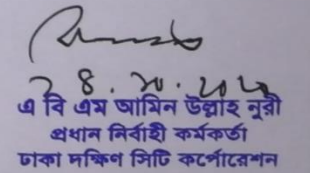 এ বি এম আমিন উল্লাহ নূরী
প্রধান নির্বাহী কর্মকর্তা
ঢাকা দক্ষিণ সিটি কর্পোরেশন